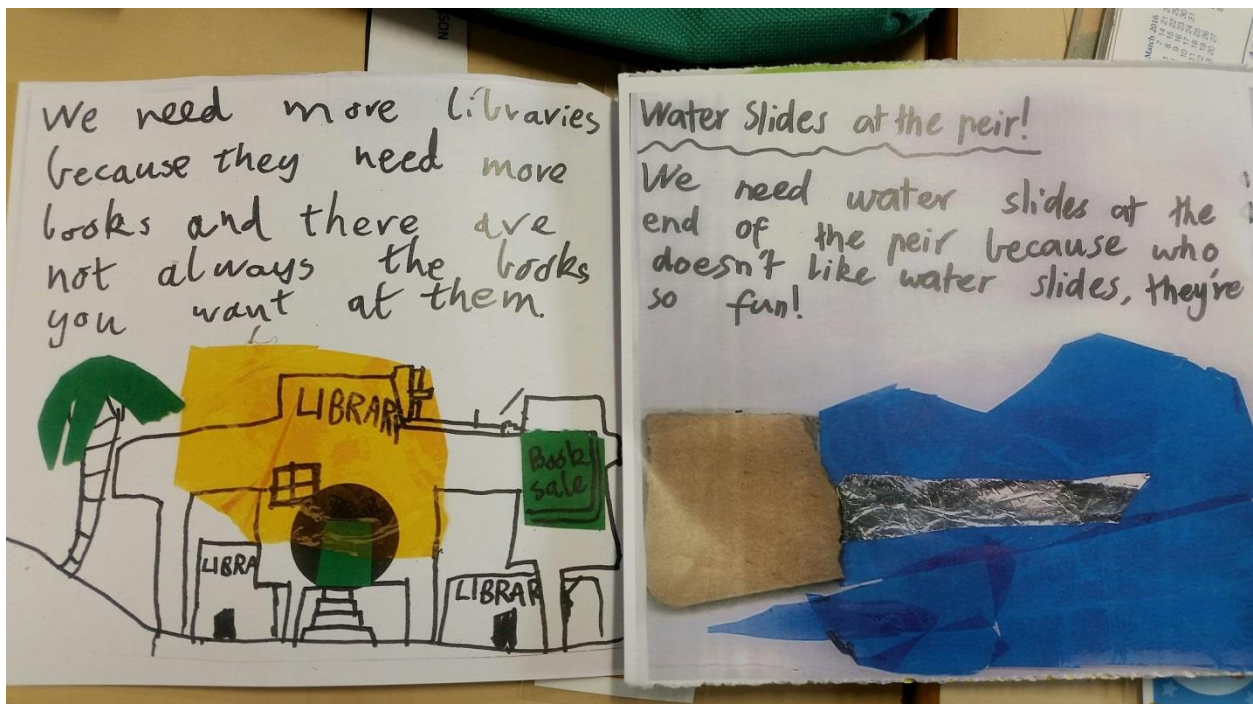 We need more libraries
because they need more
books and there are
not always the books
you want at them.
LIBRARY
Book
sale
LIBRA
LIBRAR
Water Slides at the peir!
We need water slides at the
end of the peir because who
doesn't like water slides, they're
so fun!
SON
March 2016